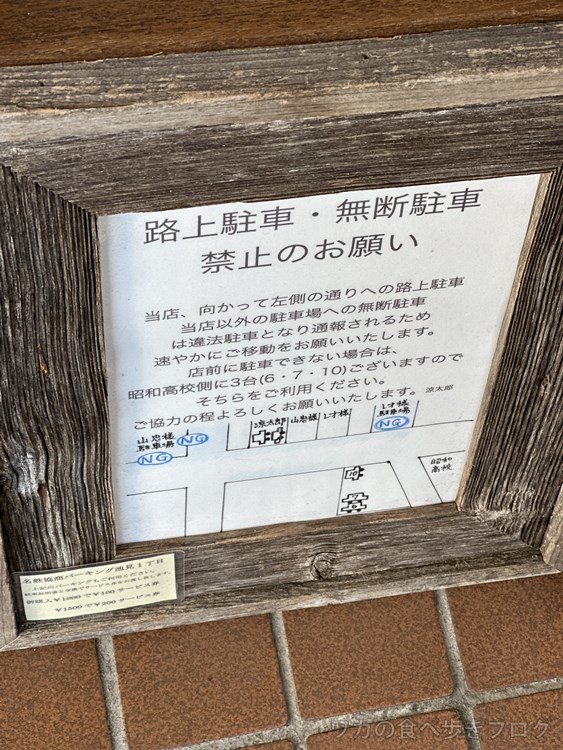 路上駐車・無断駐車
禁止のお願い
当店、向かって左側の通りへの路上駐車
当店以外の駐車場への無断駐車
は違法駐車となり通報されるため
速やかにご移動をお願いいたします。
店前に駐車できない場合は、
昭和高校側に3台(6・7・10)ございますので
そちらをご利用ください。
ご協力の程よろしくお願いいたします。 涼太郎
山忠様
駐車場
NG
NG
涼太郎
山忠様
レオ様
レオ様
駐車場
NG
10
7
6
昭和
高校
名鉄協商パーキング池見1丁目
上記のパーキングもご利用ください。
御購入¥1000で¥100サービス券
¥1500で¥200サービス券
ツカの食べ歩きブログ